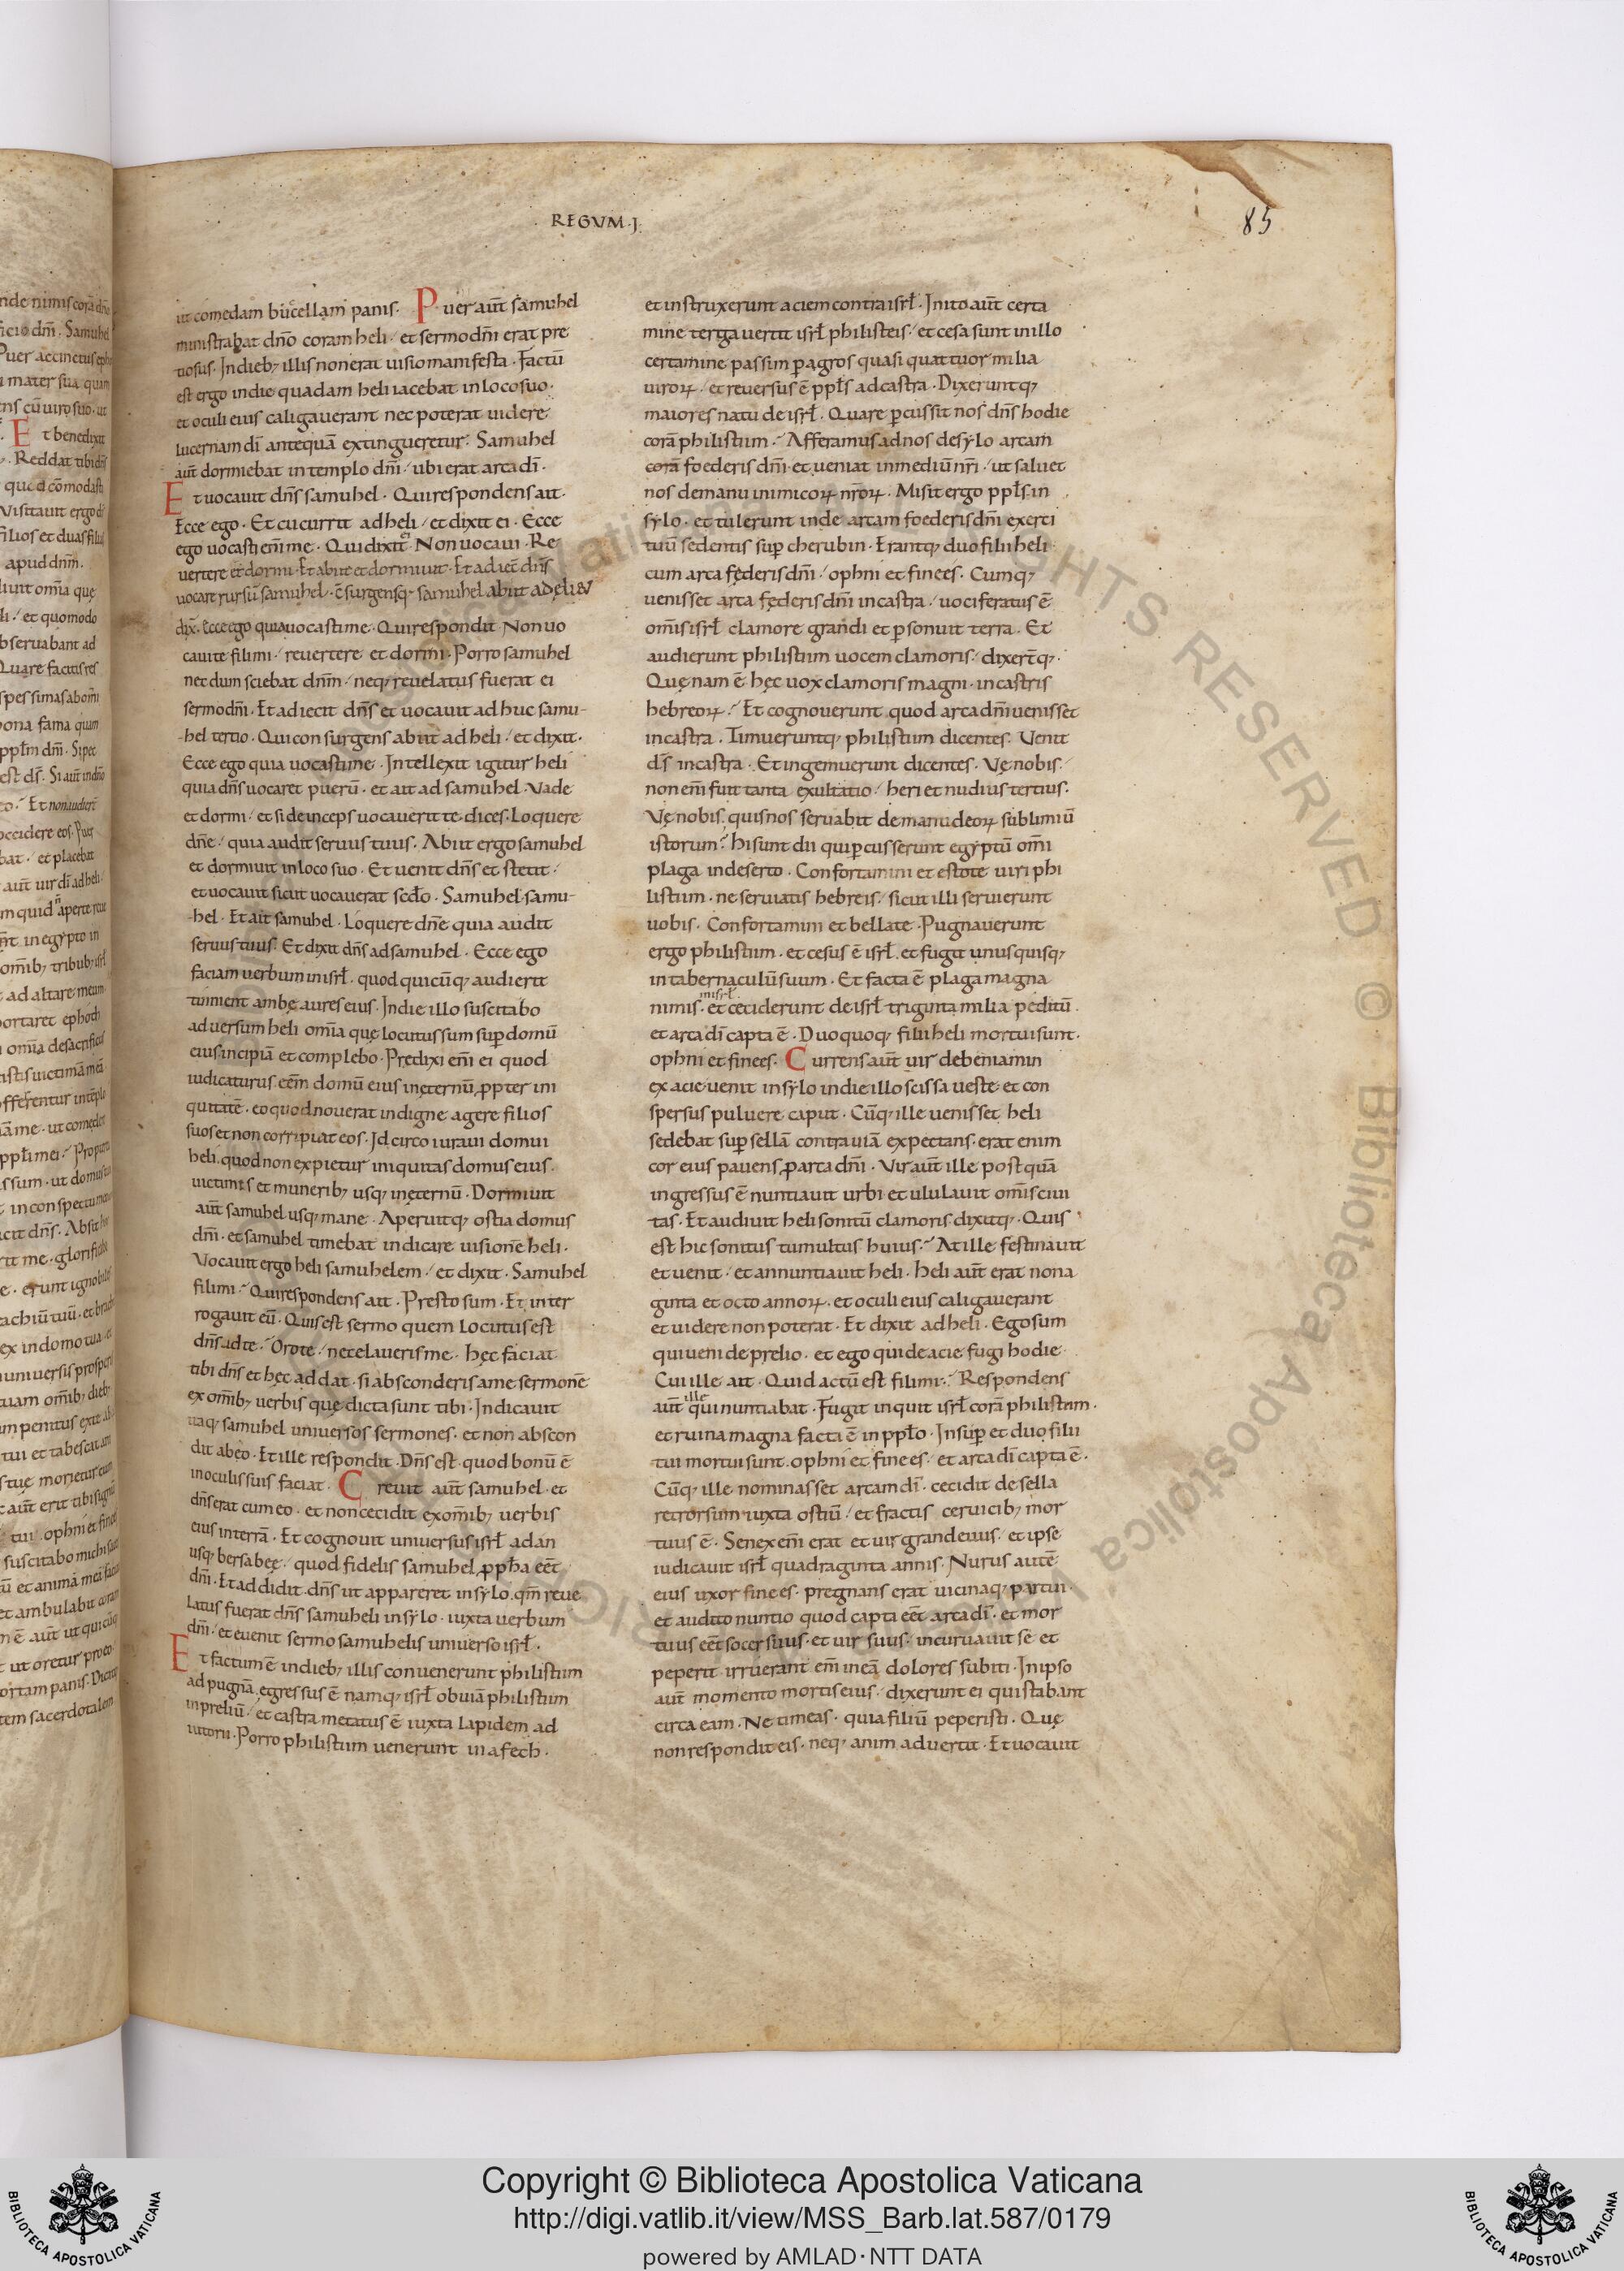 REGVM·I·
85
ut comedam buccellam panis. Puer aut̄ samuhel
ministrabat dn̄o coram heli / et sermo dn̄i erat pre
tiosus. In dieb; illis non erat uisio manifesta. Factū
est ergo in die quadam heli iacebat in loco suo.
et oculi eius caligauerant nec poterat uidere
lucernam dī antequā extingueretur. Samuhel
aut̄ dormiebat in templo dn̄i / ubi erat arca dī.
Et uocauit dn̄s samuhel. Qui respondens ait.
Ecce ego. Et cucurrit ad heli / et dixit ei. Ecce
ego uocasti enī me. Qui dixit ei Non uocaui. Re
uertere et dormi. Et abiit et dormiuit. Et adiec̄ dn̄s
uocare rursū samuhel. c̄surgensq; samuhel abiit ad ęli &
dix̄. Ecce ego quia uocasti me. Qui respondit Non uo
caui te fili mi / reuertere et dormi. Porro samuhel
nec dum sciebat dn̄m / neq; reuelatus fuerat ei
sermo dn̄i. Et adiecit dn̄s et uocauit ad huc samu-
-hel tertio. Qui consurgens abiit ad heli / et dixit.
Ecce ego quia uocasti me. Intellexit igitur heli
quia dn̄s uocaret puerū. et ait ad samuhel. Vade
et dormi / et si deinceps uocauerit te. dices. Loquere
dn̄e / quia audit seruus tuus. Abiit ergo samuhel
et dormiuit in loco suo. Et uenit dn̄s et stetit /
et uocauit sicut uocauerat scd̄o. Samuhel samu-
-hel. Et ait samuhel. Loquere dn̄e quia audit
seruus tuus. Et dixit dn̄s ad samuhel. Ecce ego
faciam uerbum in isrł. quod quicūq; audierit
tinnient ambę aures eius. In die illo suscitabo
aduersum heli om̄ia quę locutus sum sup̄ domū
eius incipiā et complebo. Predixi enī ei quod
iudicaturus eēm domū eius in ęternū ꝓpter ini
quitatē. eo quod nouerat indigne agere filios
suos et non corripiat eos. Id circo iuraui domui
heli. quod non expietur iniquitas domus eius.
uictimis et munerib; usq; in ęternū. Dormiuit
aut̄ samuhel usq; mane. Aperuitq; ostia domus
dn̄i. et samuhel timebat indicare uisionē heli.
Vocauit ergo heli samuhelem / et dixit. Samuhel
fili mi. Qui respondens ait. Presto sum. Et inter
rogauit eū. Quis est sermo quem locutus est
dn̄s ad te. Oro te / ne celaueris me. hęc faciat
tibi dn̄s et hęc addat. si absconderis a me sermonē
ex om̄ib; uerbis quę dicta sunt tibi. Indicauit
itaq; samuhel uniuersos sermones. et non abscon
dit ab eo. Et ille respondit. Dn̄s est. quod bonū ē
in oculis suis faciat. Creuit aut̄ samuhel. et
dn̄s erat cum eo. et non cecidit ex om̄ib; uerbis
eius in terrā. Et cognouit uniuersus isrł a dan
usq; bersabeę / quod fidelis samuhel ꝓpħa eēt
dn̄i. Et addidit dn̄s ut appareret in sẏlo. qm̄ reue
latus fuerat dn̄s samuheli in sẏlo. iuxta uerbum
dn̄i. et euenit sermo samuhelis uniuerso isrł.
Et factum ē in dieb; illis conuenerunt philistiim
ad pugnā. egressus ē namq; isrł obuiā philistiim
in preliū. et castra metatus ē iuxta lapidem ad
iutorii. Porro philistiim uenerunt in afech.
et instruxerunt aciem contra isrł. Inito aut̄ certa
mine terga uertit isrł philisteis / et cesa sunt in illo
certamine passim p̄ agros quasi quattuor milia
uiroꝝ. et reuersus ē ppłs ad castra. Dixeruntq;
maiores natu de isrł. Quare p̄cussit nos dn̄s hodie
corā philistiim. Afferamus ad nos de sẏlo arcam
corā foederis dn̄i. et ueniat in mediū nr̄i / ut saluet
nos de manu inimicoꝝ nr̄oꝝ. Misit ergo ppłs in
sẏlo. et tulerunt inde arcam foederis dn̄i exerci
tuū sedentis sup̄ cherubin. Erantq; duo filii heli
cum arca fęderis dn̄i / ophni et finees. Cumq;
uenisset arca fęderis dn̄i in castra / uociferatus ē
om̄is isrł clamore grandi et p̄sonuit terra. Et
audierunt philistiim uocem clamoris / dixer̄tq;.
Quęnam ē hęc uox clamoris magni. in castris
hebreoꝝ. Et cognouerunt quod arca dn̄i uenisset
in castra. Timueruntq; philistiim dicentes. Venit
ds̄ in castra. Et ingemuerunt dicentes. Vę nobis /
non enī fuit tanta exultatio / heri et nudius tertius.
Vę nobis. quis nos seruabit de manu deoꝝ sublimiū
istorum. hi sunt dii qui p̄cusserunt egẏptū om̄i
plaga in deserto. Confortamini et estote uiri phi
listiim. ne seruiatis hebreis. sicut illi seruierunt
uobis. Confortamini et bellate. Pugnauerunt
ergo philistiim. et cesus ē isrł. et fugit unusquisq;
in tabernaculū suum. Et facta ē plaga magna
nimis in isrł. et ceciderunt de isrł triginta milia peditū.
et arca dī capta ē. Duo quoq; filii heli mortui sunt.
ophni et finees. Currens aut̄ uir de beniamin
ex acie uenit in sẏlo in die illo scissa ueste. et con
spersus puluere caput. Cūq; ille uenisset heli
sedebat sup̄ sellā contra uiā expectans. erat enim
cor eius pauens ꝓ arca dn̄i. Vir aut̄ ille postquā
ingressus ē nuntiauit urbi et ululauit om̄is ciui
tas. Et audiuit heli sonitū clamoris dixitq;. Quis
est hic sonitus tumultus huius. At ille festinauit
et uenit / et annuntiauit heli. heli aut̄ erat nona
ginta et octo annoꝝ. et oculi eius caligauerant
et uidere non poterat. Et dixit ad heli. Ego sum
qui ueni de prelio. et ego qui de acie fugi hodie
Cui ille ait. Quid actū est fili mi. Respondens
aut̄ ille qui nuntiabat. Fugit inquit isrł corā philistiim.
et ruina magna facta ē in ppło. Insup̄ et duo filii
tui mortui sunt. ophni et finees / et arca dī capta ē.
Cūq; ille nominasset arcam dī. cecidit de sella
retrorsum iuxta ostiū / et fractis ceruicib; mor
tuus ē. Senex enī erat et uir grandeuus. et ipse
iudicauit isrł quadraginta annis. Nurus autē
eius uxor finees. pregnans erat uicinaq; partui.
et audito nuntio quod capta eēt arca dī. et mor
tuus eēt socer suus. et uir suus. incuruauit se et
peperit. irruerant enī in eā dolores subiti. In ipso
aut̄ momento mortis eius / dixerunt ei qui stabant
circa eam. Ne timeas. quia filiū peperisti. Quę
non respondit eis. neq; animaduertit. Et uocauit
Copyright © Biblioteca Apostolica Vaticana
http://digi.vatlib.it/view/MSS_Barb.lat.587/0179
powered by AMLAD·NTT DATA